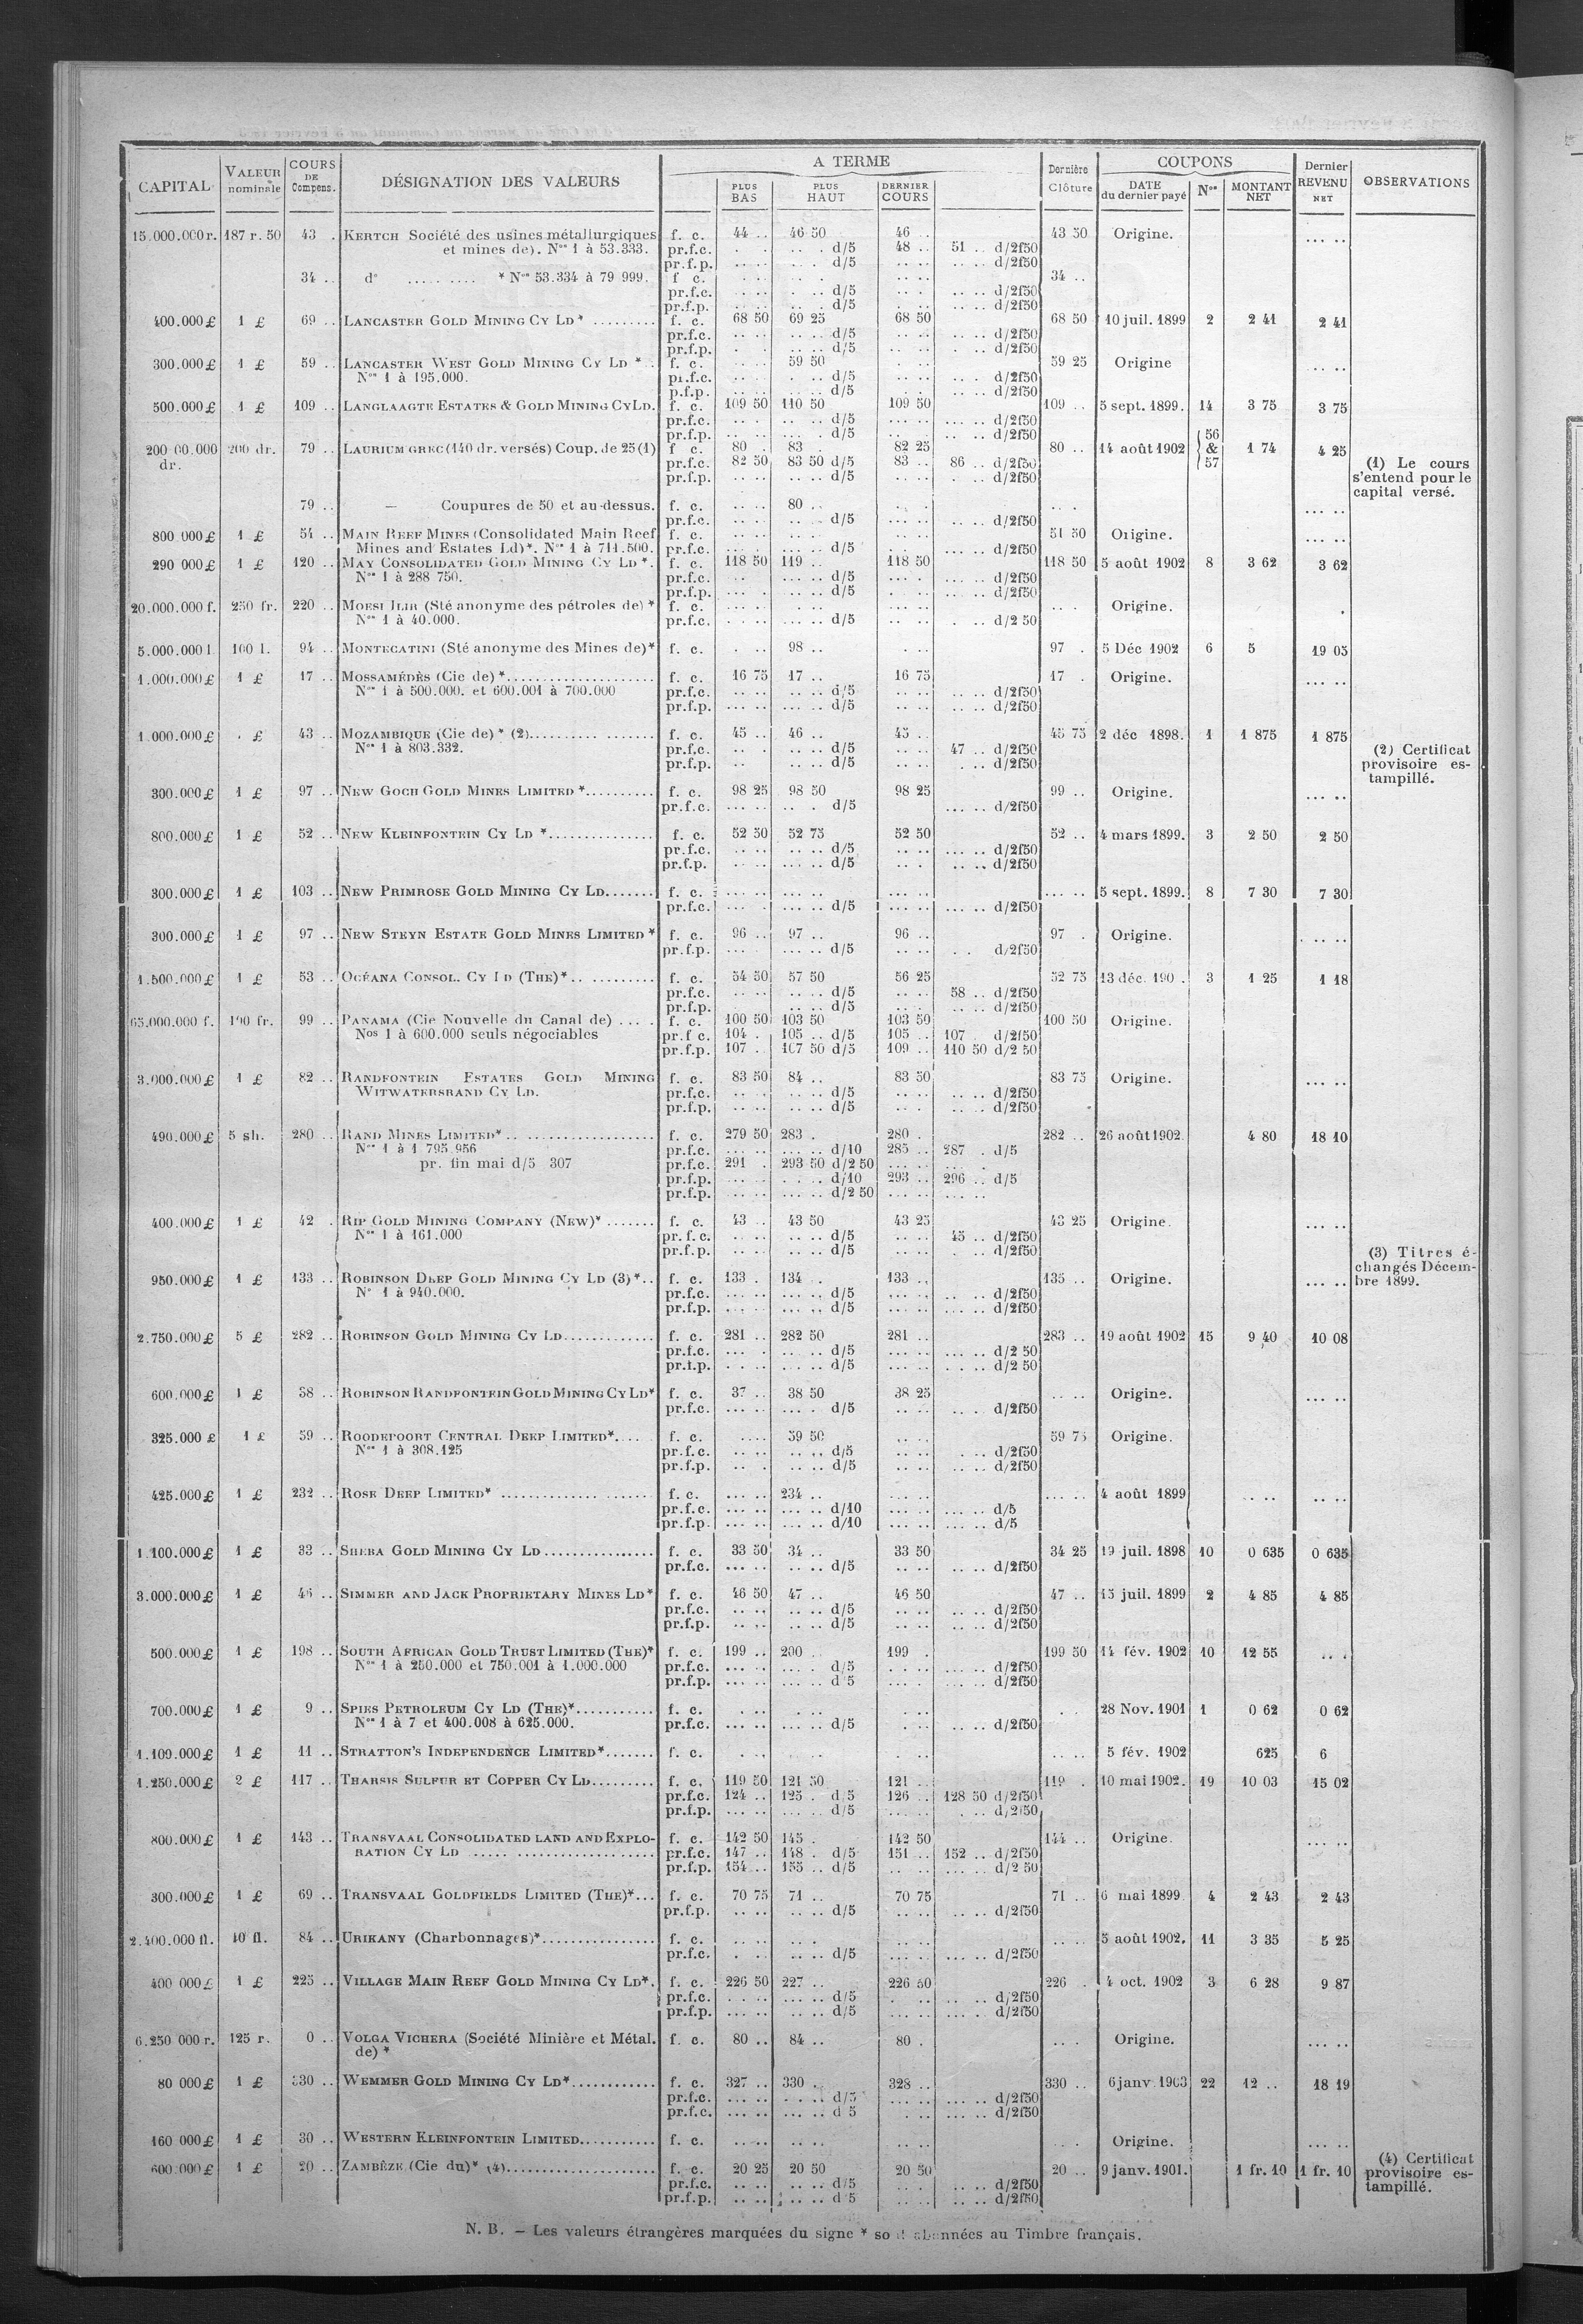 CAPITAL VALEUR nominale COURS DE Compens. DÉSIGNATION DES VALEURS A TERME PLUS BAS PLUS HAUT DERNIER COURS Dernière Clôture COUPONS DATE du dernier payé Nos MONTANT NET Dernier REVENU NET OBSERVATIONS
15.000.000 r. 187 r. 50 43 . KERTCH Société des usines métallurgiques f. c. 44 .. 46 50 46 .. 43 50 Origine. ... ..
et mines de). Nos 1 à 53.333. pr.f.c. . . .. . d/5 48 .. 51 .. d/2f50
pr.f.p. .. .. . . d/5 .. .. .. .. d/2f50
34 .. d° ..... .... * Nos 53.334 à 79 999. f c. 34 ..
pr.f.c. .. .. d/5 .. .. d/2f50
pr.f.p. .. .. d/5 .. .. d/2f50
400.000 £ 1 £ 69 .. LANCASTER GOLD MINING CY LD * ......... f. c. 68 50 69 25 68 50 68 50 10 juil. 1899 2 2 41 2 41
pr.f.c. .. .. d/5 .. .. d/2f50
pr.f.p. .. .. d/5 .. .. d/2f50
300.000 £ 1 £ 59 .. LANCASTER WEST GOLD MINING CY LD * .. f. c. 59 50 59 25 Origine ... ..
Nos 1 à 195.000. pr.f.c. .. .. d/5 .. . d/2f50
p.f.p. .. .. d/5 .. .. d/2f50
500.000 £ 1 £ 109 .. LANGLAAGTE ESTATES & GOLD MINING CY LD. f. c. 109 50 110 50 109 50 109 .. 5 sept. 1899. 14 3 75 3 75
pr.f.c. .. .. d/5 .. .. d/2f50
pr.f.p. .. . d/5 .. .. d/2f50
200 00.000 dr. 200 dr. 79 .. LAURIUM GREC (140 dr. versés) Coup. de 25 (1) f c. 80 . 83 . 82 25 80 .. 14 août 1902 56 & 57 1 74 4 25
pr.f.c. 82 50 83 50 d/5 83 .. 86 .. d/2f50 (1) Le cours
pr.f.p. .. .. d/5 . .. d/2f50 s'entend pour le
capital versé.
79 .. — Coupures de 50 et au-dessus. f. c. 80 .. ... ..
pr.f.c. .. .. d/5 ... .. d/2f50
800 000 £ 1 £ 54 .. MAIN REEF MINES (Consolidated Main Reef f. c. 51 50 Origine. ... ..
Mines and Estates Ld)*. Nos 1 à 711.500. pr.f.c. ... .. d/5 ... .. d/2f50
290 000 £ 1 £ 120 .. MAY CONSOLIDATED GOLD MINING CY LD *. f. c. 118 50 119 .. 118 50 118 50 5 août 1902 8 3 62 3 62
Nos 1 à 288 750. pr.f.c. ... .. d/5 ... .. d/2f50
pr.f.p. ... .. d/5 ... .. d/2f50
20.000.000 f. 250 fr. 220 .. MOESI ILIR (Sté anonyme des pétroles de) * f. c. Origine.
Nos 1 à 40.000. pr.f.c. ... .. d/5 . .. d/2 50
5.000.000 l. 100 l. 94 .. MONTECATINI (Sté anonyme des Mines de)* f. c. 98 .. 97 . 5 Déc 1902 6 5 19 05
1.000.000 £ 1 £ 17 .. MOSSAMÉDÈS (Cie de) * .................... f. c. 16 75 17 .. 16 75 17 . Origine. ... ..
Nos 1 à 500.000. et 600.001 à 700.000 pr.f.c. ... .. d/5 .. .. d/2f50
pr.f.p. ... .. d/5 .. .. d/2f50
1.000.000 £ . £ 43 .. MOZAMBIQUE (Cie de) * (2).......... ....... f. c. 45 .. 46 .. 45 .. 45 75 2 déc 1898. 1 1 875 1 875
Nos 1 à 803.332. pr.f.c. .. .. d/5 47 .. d/2f50 (2) Certificat
pr.f.p. .. .. d/5 . .. d/2f50 provisoire es-
tampillé.
300.000 £ 1 £ 97 .. NEW GOCH GOLD MINES LIMITED *.......... f. c. 98 25 98 50 98 25 99 .. Origine. ... ..
pr.f.c. .. . d/5 ... .. d/2f50
800.000 £ 1 £ 52 .. NEW KLEINFONTEIN CY LD *............... f. c. 52 50 52 75 52 50 52 .. 4 mars 1899. 3 2 50 2 50
pr.f.c. ... .. d/5 ... .. d/2f50
pr.f.p. ... .. d/5 .. .. d/2f50
300.000 £ 1 £ 103 .. NEW PRIMROSE GOLD MINING CY LD....... f. c. ... .. 5 sept. 1899. 8 7 30 7 30
pr.f.c. ... .. d/5 ... .. d/2f50
300.000 £ 1 £ 97 .. NEW STEYN ESTATE GOLD MINES LIMITED * f. c. 96 .. 97 .. 96 .. 97 . Origine. . .. ..
pr.f.p. ... .. d/5 . . d/2f50
1.500.000 £ 1 £ 53 .. OCÉANA CONSOL. CY LD (THE) *.. .......... f. c. 54 50 57 50 56 25 52 75 13 déc. 190 . 3 1 25 1 18
pr.f.c. .. .. d/5 58 .. d/2f50
pr.f.p. .. .. d/5 .. .. d/2f50
65.000.000 f. 100 fr. 99 .. PANAMA (Cie Nouvelle du Canal de) .... . f. c. 100 50 103 50 103 50 100 50 Origine.
Nos 1 à 600.000 seuls négociables pr.f c. 104 . 105 .. d/5 105 .. 107 d/2f50
pr.f.p. 107 . 107 50 d/5 109 .. 110 50 d/2 50
3.000.000 £ 1 £ 82 .. RANDFONTEIN ESTATES GOLD MINING f. c. 83 50 84 .. 83 50 83 75 Origine. ... ..
WITWATERSRAND CY LD. pr.f.c. .. .. d/5 .. .. d/2f50
pr.f.p. .. .. d/5 .. .. d/2f50
490.000 £ 5 sh. 280 .. RAND MINES LIMITED* .. .................. f. c. 279 50 283 . 280 . 282 .. 26 août 1902. 4 80 18 10
Nos 1 à 1 795 956 pr.f.c. ... .. d/10 285 .. 287 . d/5
pr. fin mai d/5 307 pr.f.c. 291 . 293 50 d/2 50
pr.f.p. . .. d/10 293 .. 296 .. d/5
pr.f.p. ... .. d/2 50
400.000 £ 1 £ 42 . RIP GOLD MINING COMPANY (NEW)* ....... f. c. 43 .. 43 50 43 25 43 25 Origine. ... ..
Nos 1 à 161.000 pr. f. c. .. .. d/5 45 .. d/2f50
pr.f.p. .. .. d/5 . .. d/2f50 (3) Titres é-
changés Décem-
950.000 £ 1 £ 133 .. ROBINSON DEEP GOLD MINING CY LD (3) *.. f. c. 133 . 134 . 133 .. 135 .. Origine. ... .. bre 1899.
N° 1 à 940.000. pr.f.c. ... .. d/5 .. .. d/2f50
pr.f.p. ... .. d/5 ... .. d/2f50
2.750.000 £ 5 £ 282 .. ROBINSON GOLD MINING CY LD............. f. c. 281 .. 282 50 281 .. 283 .. 19 août 1902 15 9 40 10 08
pr.f.c. .. .. d/5 ... .. d/2 50
pr.f.p. .. .. d/5 . .. d/2 50
600.000 £ 1 £ 38 .. ROBINSON RANDFONTEIN GOLD MINING CY LD* f. c. 37 .. 38 50 38 25 Origine. ... ..
pr.f.c. ... . d/5 .. . d/2f50
325.000 £ 1 £ 59 .. ROODEPOORT CENTRAL DEEP LIMITED*.... f. c. 59 50 59 75 Origine.
Nos 1 à 308.125 pr.f.c. .. .. d/5 . .. d/2f50
pr.f.p. .. .. d/5 .. .. d/2f50
425.000 £ 1 £ 232 .. ROSE DEEP LIMITED* ...................... f. c. 234 .. 4 août 1899 .. .. .. ..
pr.f.c. ... .. d/10 ... .. d/5
pr.f.p. ... .. d/10 ... .. d/5
1.100.000 £ 1 £ 33 .. SHEBA GOLD MINING CY LD ................ f. c. 33 50 34 .. 33 50 34 25 19 juil. 1898 10 0 635 0 635
pr.f.c. ... .. d/5 ... .. d/2f50
3.000.000 £ 1 £ 46 .. SIMMER AND JACK PROPRIETARY MINES LD* f. c. 46 50 47 .. 46 50 47 .. 15 juil. 1899 2 4 85 4 85
pr.f.c. .. .. d/5 .. .. d/2f50
pr.f.p. .. .. d/5 .. .. d/2f50
500.000 £ 1 £ 198 .. SOUTH AFRICAN GOLD TRUST LIMITED (THE)* f. c. 199 .. 200 .. 199 . 199 50 14 fév. 1902 10 12 55 .. .
Nos 1 à 250.000 et 750.001 à 1.000.000 pr.f.c. ... . d/5 ... .. d/2f50
pr.f.p. ... .. d 5 ... .. d/2f50
700.000 £ 1 £ 9 .. SPIES PETROLEUM CY LD (THE)*........... f. c. 28 Nov. 1901 1 0 62 0 62
Nos 1 à 7 et 400.008 à 625.000. pr.f.c. ... .. d/5 .. .. d/2f50
1.100.000 £ 1 £ 11 .. STRATTON'S INDEPENDENCE LIMITED*....... f. c. 5 fév. 1902 625 6
1.250.000 £ 2 £ 117 .. THARSIS SULFUR ET COPPER CY LD......... f. c. 119 50 121 50 121 .. 119 . 10 mai 1902. 19 10 03 15 02
pr.f.c. 124 .. 125 . d/5 126 .. 128 50 d/2f50
pr.f.p. ... .. d/5 . .. d/2f50
800.000 £ 1 £ 143 .. TRANSVAAL CONSOLIDATED LAND AND EXPLO- f. c. 142 50 145 . 142 50 144 .. Origine. ... ..
RATION CY LD ..... .................... pr.f.c. 147 .. 148 . d/5 151 .. 152 .. d/2f50
pr.f.p. 154 .. 155 .. d/5 ... .. d/2 50
300.000 £ 1 £ 69 .. TRANSVAAL GOLDFIELDS LIMITED (THE)*... f. c. 70 75 71 .. 70 75 71 .. 6 mai 1899 4 2 43 2 43
pr.f.p. .. .. d/5 .. .. d/2f50
2.400.000 fl. 40 fl. 84 .. URIKANY (Charbonnages)*................ f. c. 5 août 1902. 11 3 35 5 25
pr.f.c. .. .. d/5 ... .. d/2f50
400 000 £ 1 £ 225 .. VILLAGE MAIN REEF GOLD MINING CY LD*. f. c. 226 50 227 .. 226 50 226 . 4 oct. 1902 3 6 28 9 87
pr.f.c. ... .. d/5 .. .. d/2f50
pr.f.p. ... .. d/5 .. .. d/2f50
6.250 000 r. 125 r. 0 .. VOLGA VICHERA (Société Minière et Métal. f. c. 80 .. 84 .. 80 . Origine. ... ..
de) *
80 000 £ 1 £ 330 .. WEMMER GOLD MINING CY LD*............ f. c. 327 .. 330 .. 328 .. 330 .. 6 janv 1903 22 12 .. 18 19
pr.f.c. ... .. d/5 ... .. d/2f50
pr.f.c. ... .. d 5 ... .. d/2f50
160 000 £ 1 £ 30 .. WESTERN KLEINFONTEIN LIMITED........... f. c. Origine. ... ..
600.000 £ 1 £ 20 .. ZAMBÈZE (Cie du)* (4).................... f. c. 20 25 20 50 20 50 20 .. 9 janv. 1901. 1 fr. 10 1 fr. 10 (4) Certificat
pr.f.c. .. .. d/5 .. .. d/2f50 provisoire es-
pr.f.p. .. .. d 5 .. .. d/2f50 tampillé.
N. B. — Les valeurs étrangères marquées du signe * sont abonnées au Timbre français.